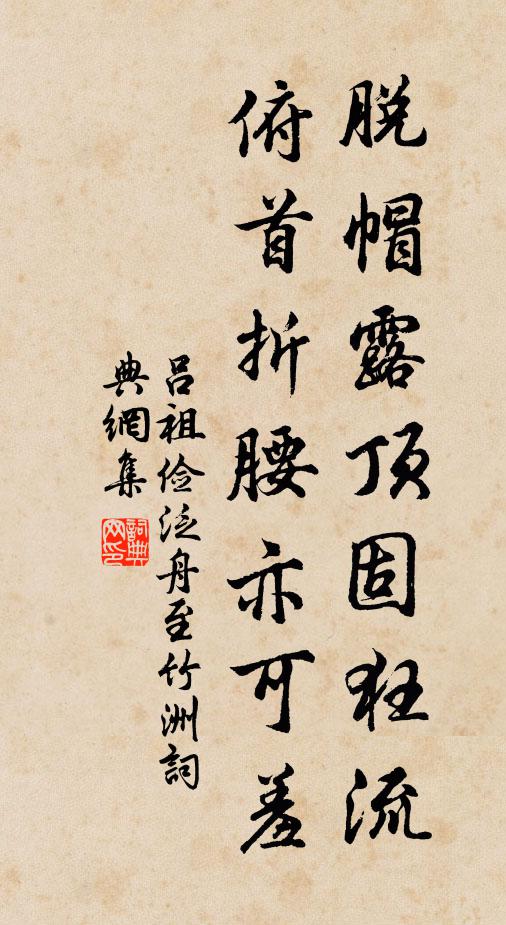 脱帽露顶固狂流
俯首折腰亦可羞
吕祖俭泛舟至竹洲詞
典網集
詞典網印